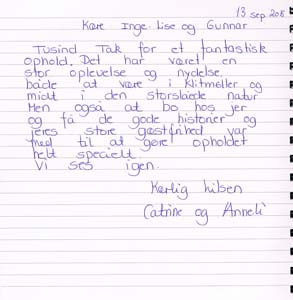 13 sep. 2015
Kære Inge-Lise og Gunnar
Tusind Tak for et fantastisk
ophold. Det har været en
stor oplevelse og nydelse,
både at være i Klitmøller og
midt i den storslåede natur
Men også at bo hos jer
og få de gode historier og
jeres store gæstfrihed var
med til at gøre opholdet
helt specielt.
Vi ses igen.
Kærlig hilsen
Catrine og Anneli